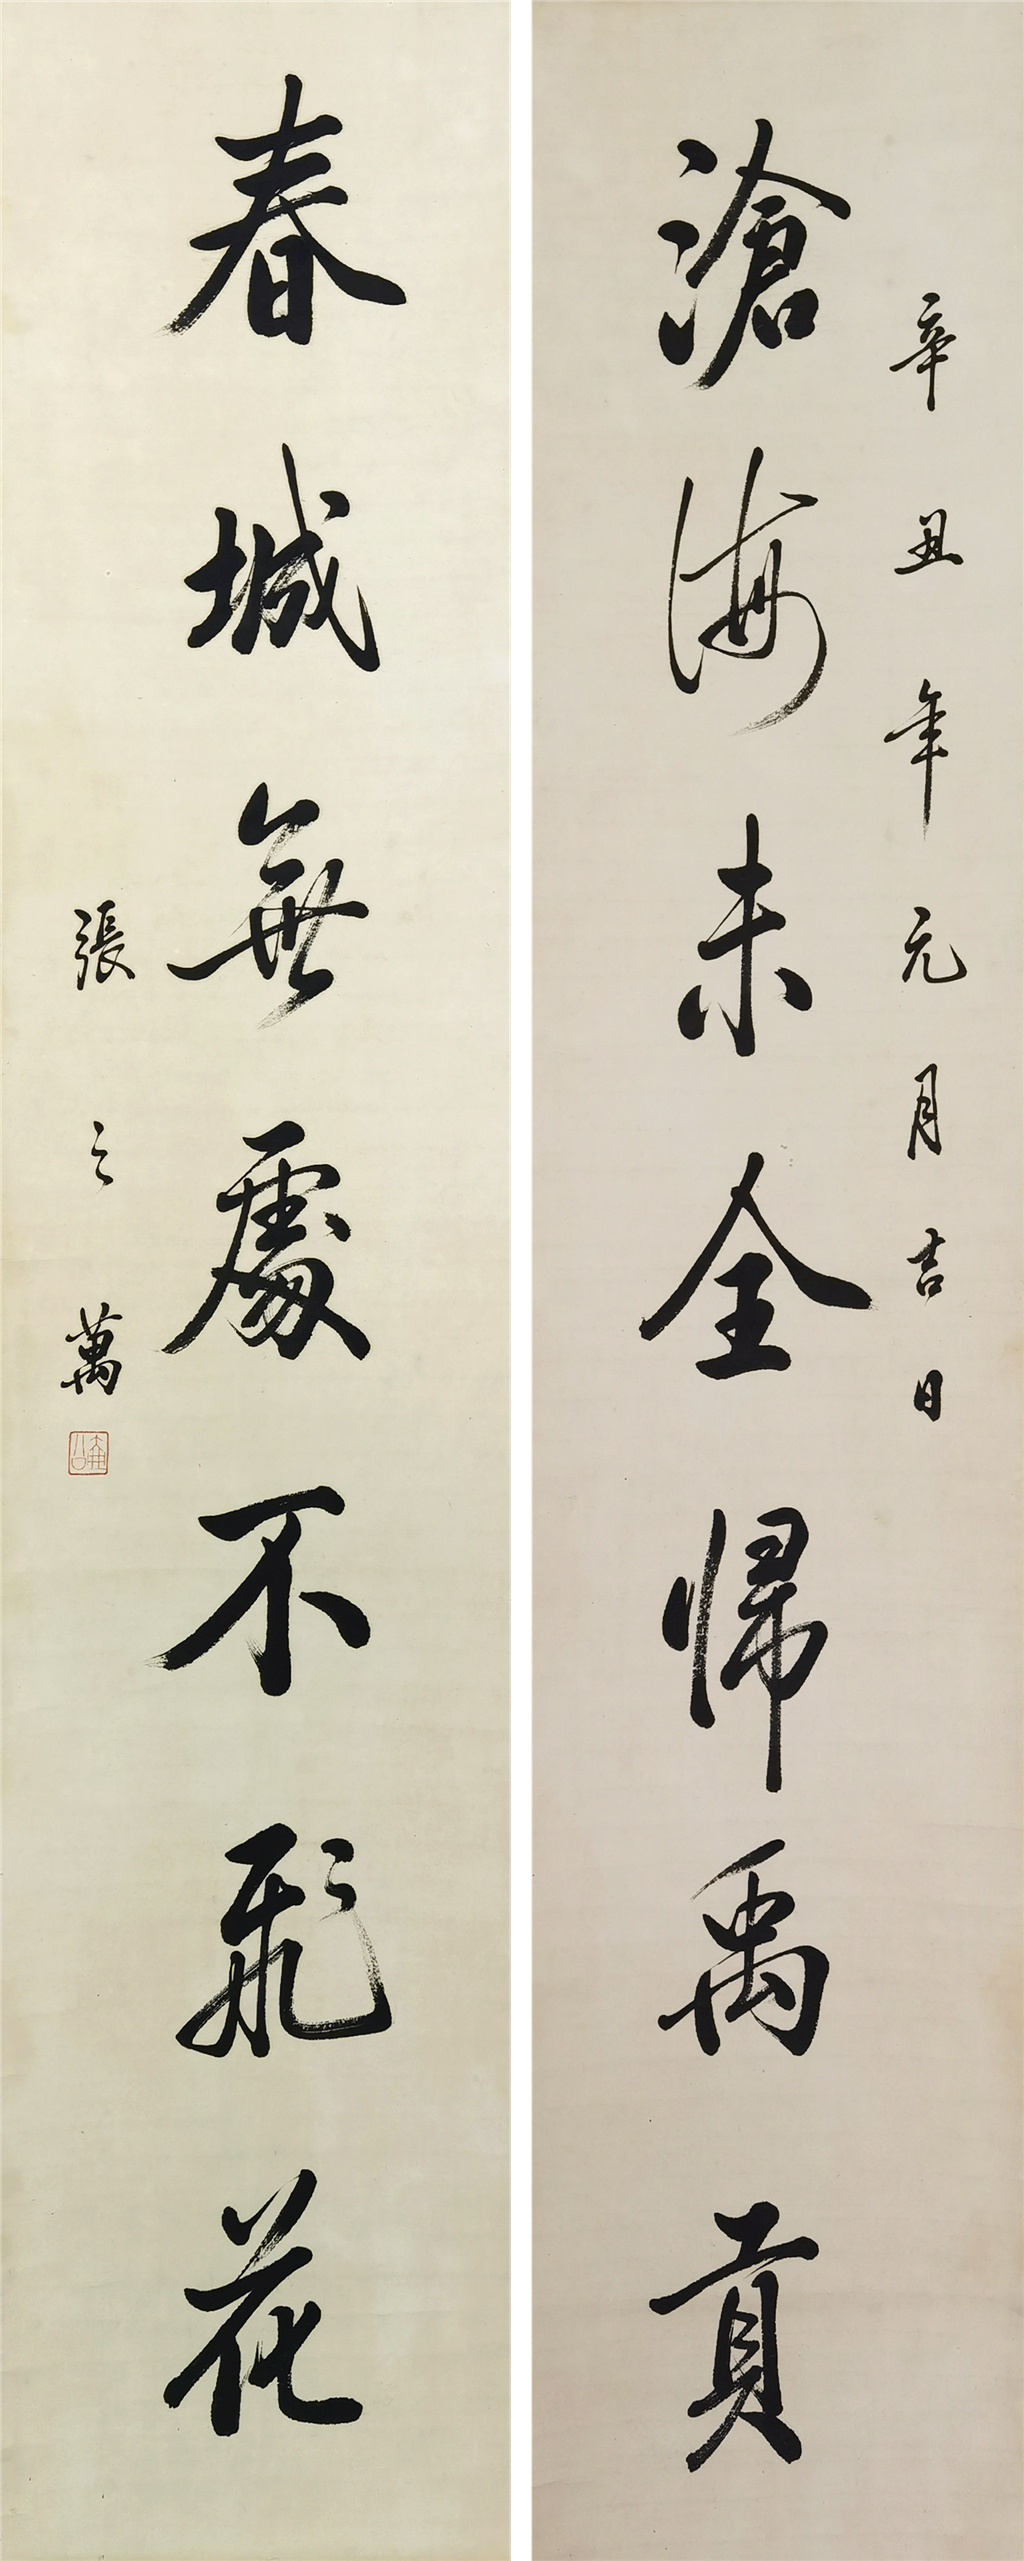 辛丑年元月吉日
滄海未全歸禹貢
春城無處不飛花
張之萬